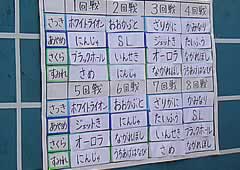 1回戦 2回戦 3回戦 4回戦
さつき ホワイトライオン おおかぶと ざりがに かみなり
あやめ にんじゃ SL ジェットき たいふう
さくら ブラックホール いんせき オーロラ ながれぼし
すみれ さめ にんじゃ ながれぼし うちあげはなび
5回戦 6回戦 7回戦 8回戦
さつき ホワイトライオン おおかぶと ざりがに かみなり
あやめ ジェットき にんじゃ たいふう SL
さくら オーロラ ながれぼし いんせき ブラックホール
すみれ にんじゃ うちあげはなび さめ ながれぼし